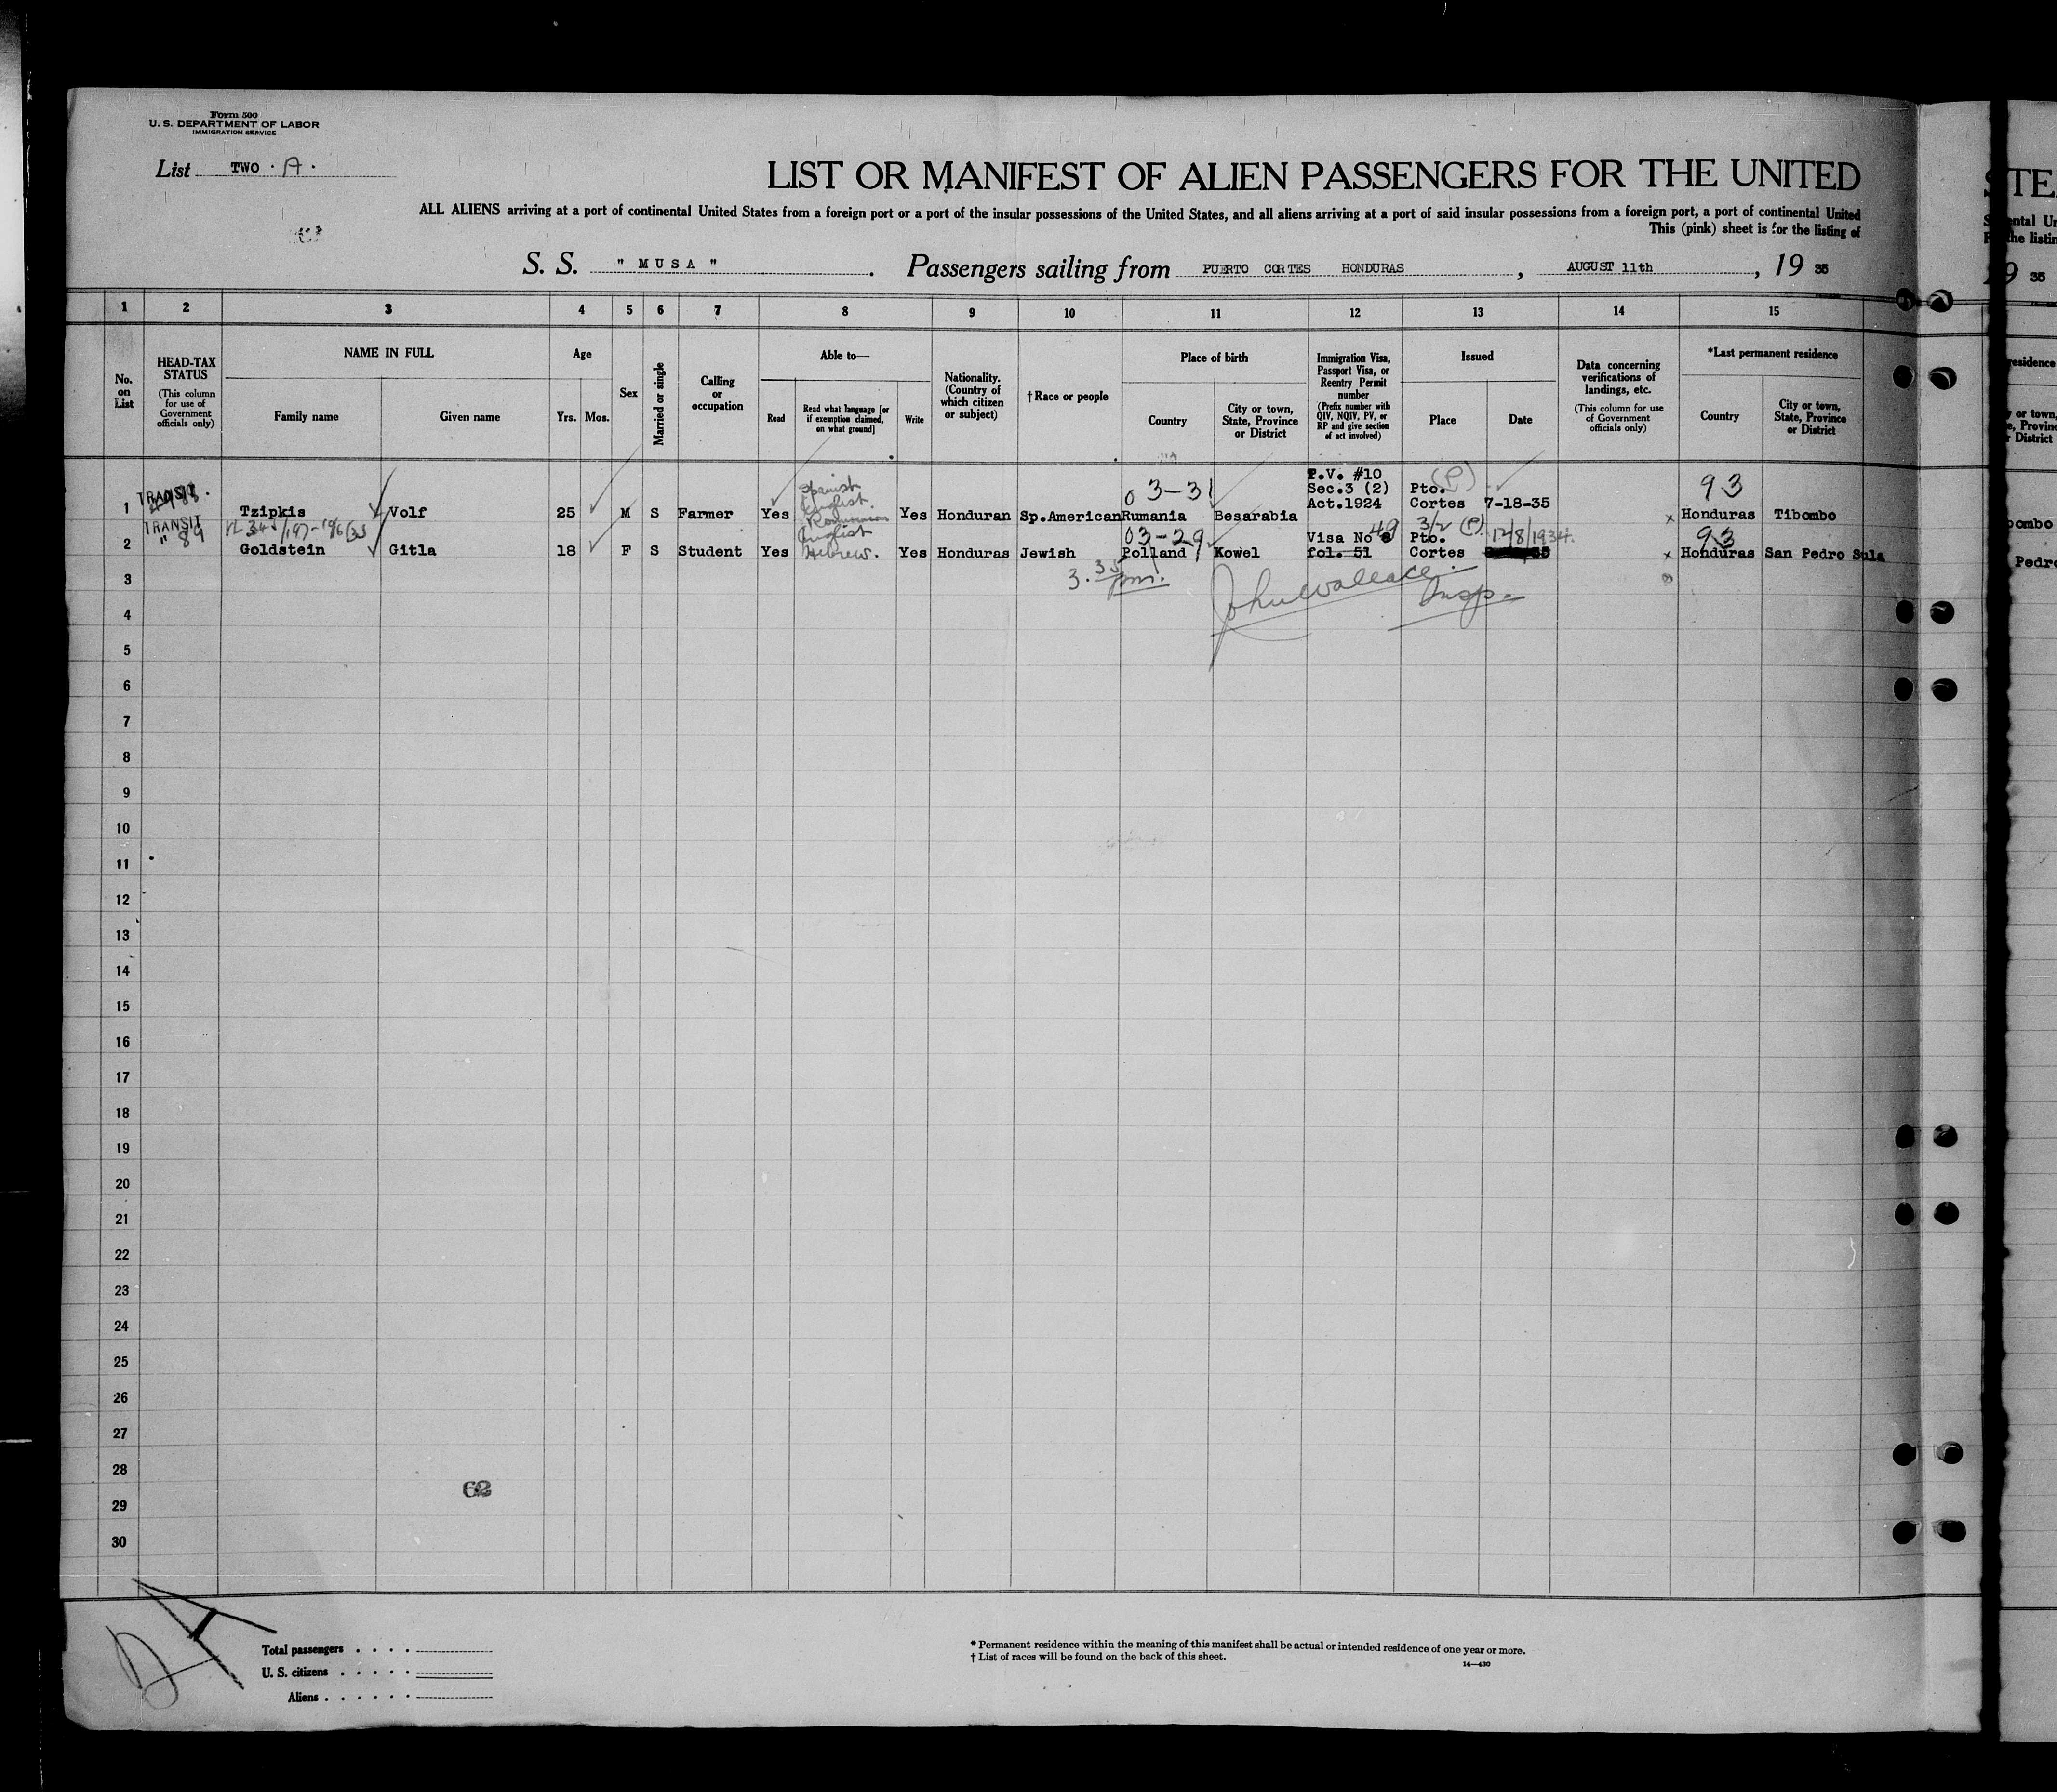 Form 500
U. S. DEPARTMENT OF LABOR
IMMIGRATION SERVICE
List TWO · A ·
LIST OR MANIFEST OF ALIEN PASSENGERS FOR THE UNITED
ALL ALIENS arriving at a port of continental United States from a foreign port or a port of the insular possessions of the United States, and all aliens arriving at a port of said insular possessions from a foreign port, a port of continental United
This (pink) sheet is for the listing of
S. S. " M U S A " . Passengers sailing from PUERTO CORTES HONDURAS , AUGUST 11th , 19 35
1 2 3 4 5 6 7 8 9 10 11 12 13 14 15
No. on List
HEAD-TAX STATUS
(This column for use of Government officials only)
NAME IN FULL
Family name Given name
Age
Yrs. Mos.
Sex
Married or single
Calling or occupation
Able to—
Read
Read what language [or if exemption claimed, on what ground]
Write
Nationality. (Country of which citizen or subject)
†Race or people
Place of birth
Country
City or town, State, Province or District
Immigration Visa, Passport Visa, or Reentry Permit number
(Prefix number with QIV, NQIV, PV, or RP and give section of act involved)
Issued
Place Date
Data concerning verifications of landings, etc.
(This column for use of Government officials only)
*Last permanent residence
Country
City or town, State, Province or District
1 TRANSIT Tzipkis Volf 25 M S Farmer Yes Spanish English Roumanian Yes Honduran Sp.American 03-31 Rumania Besarabia P.V. #10 Sec.3 (2) Act.1924 Pto. Cortes (P) 7-18-35 93 x Honduras Tibombo
2 TRANSIT " 89 Goldstein Gitla 18 F S Student Yes English Hebrew. Yes Honduras Jewish 03-29 Polland Kowel Visa No 49 fol. 51 3/2 (P) Pto. Cortes 12/8/1934. 93 x Honduras San Pedro Sula
3.35 pm. John Wallace Insp.
3
4
5
6
7
8
9
10
11
12
13
14
15
16
17
18
19
20
21
22
23
24
25
26
27
28
29
30
62
Total passengers . . . .
U. S. citizens . . . . .
Aliens . . . . . .
* Permanent residence within the meaning of this manifest shall be actual or intended residence of one year or more.
† List of races will be found on the back of this sheet.
14—430